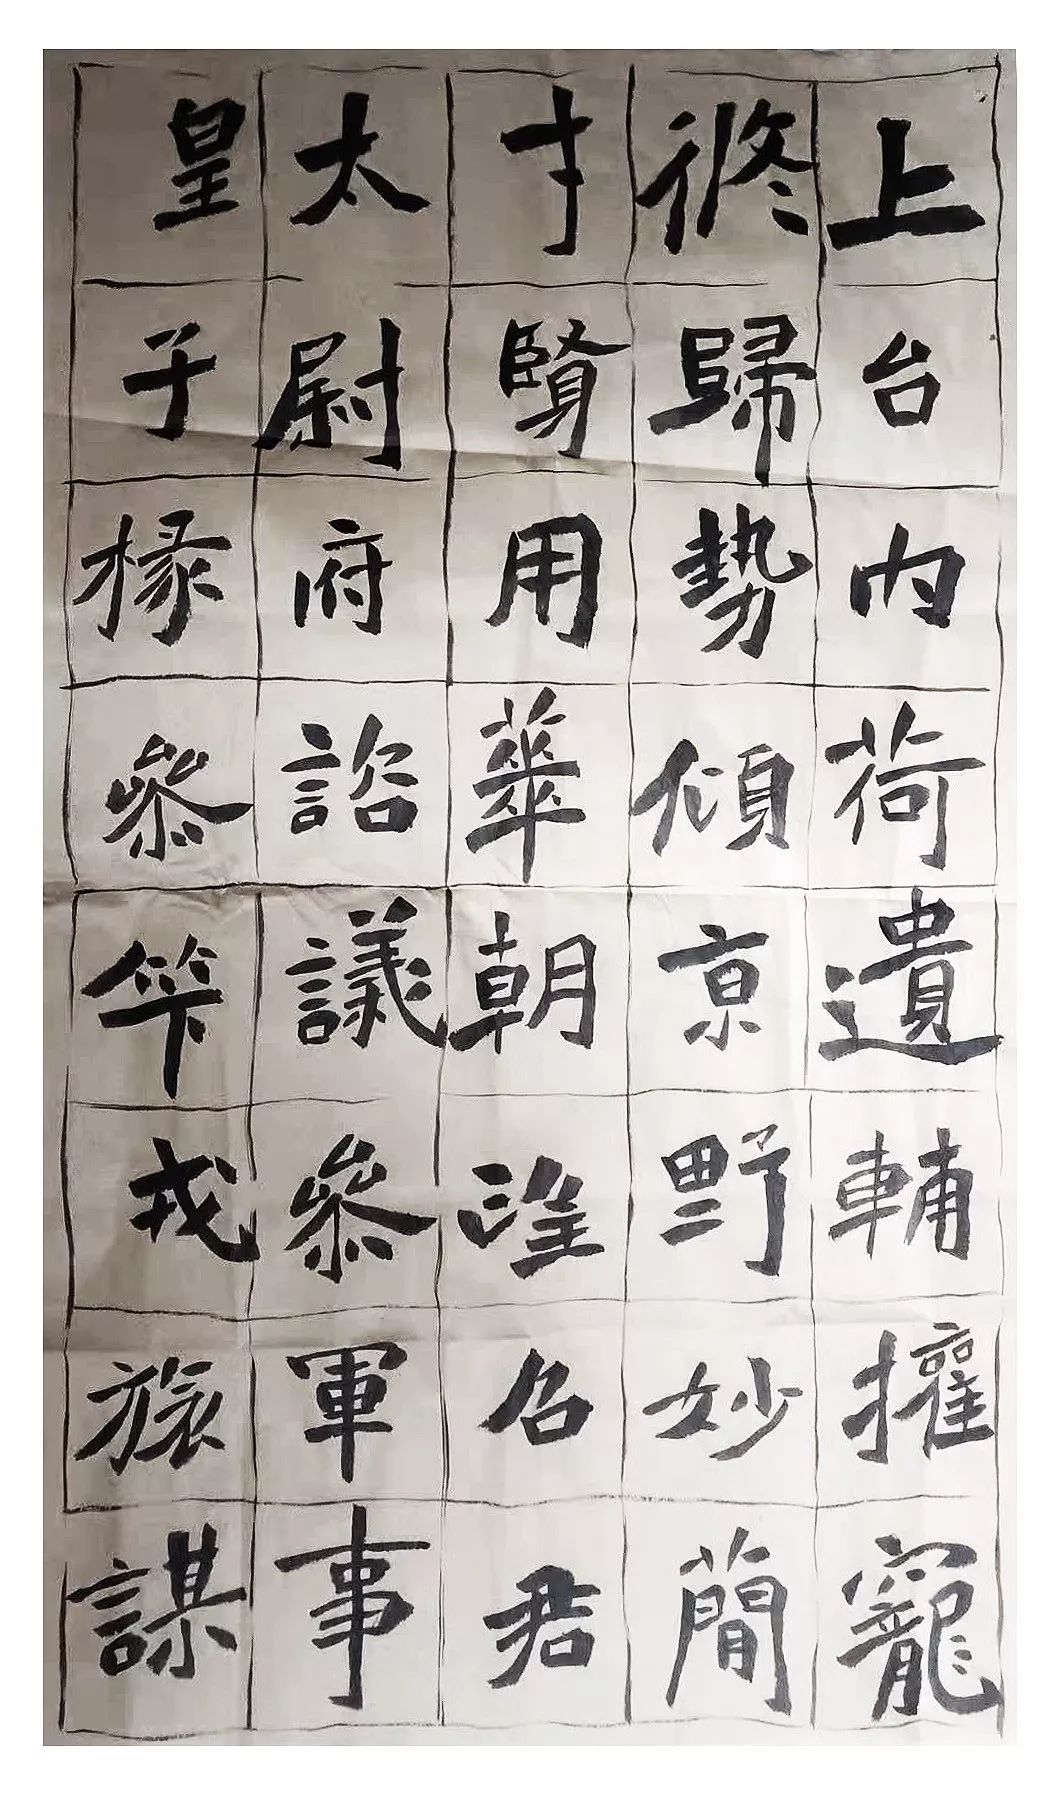 上台內荷遺輔權寵
攸歸勢傾京野妙簡
才賢用華朝望召君
太尉府諮議參軍事
皇子掾參笇戎旅謀